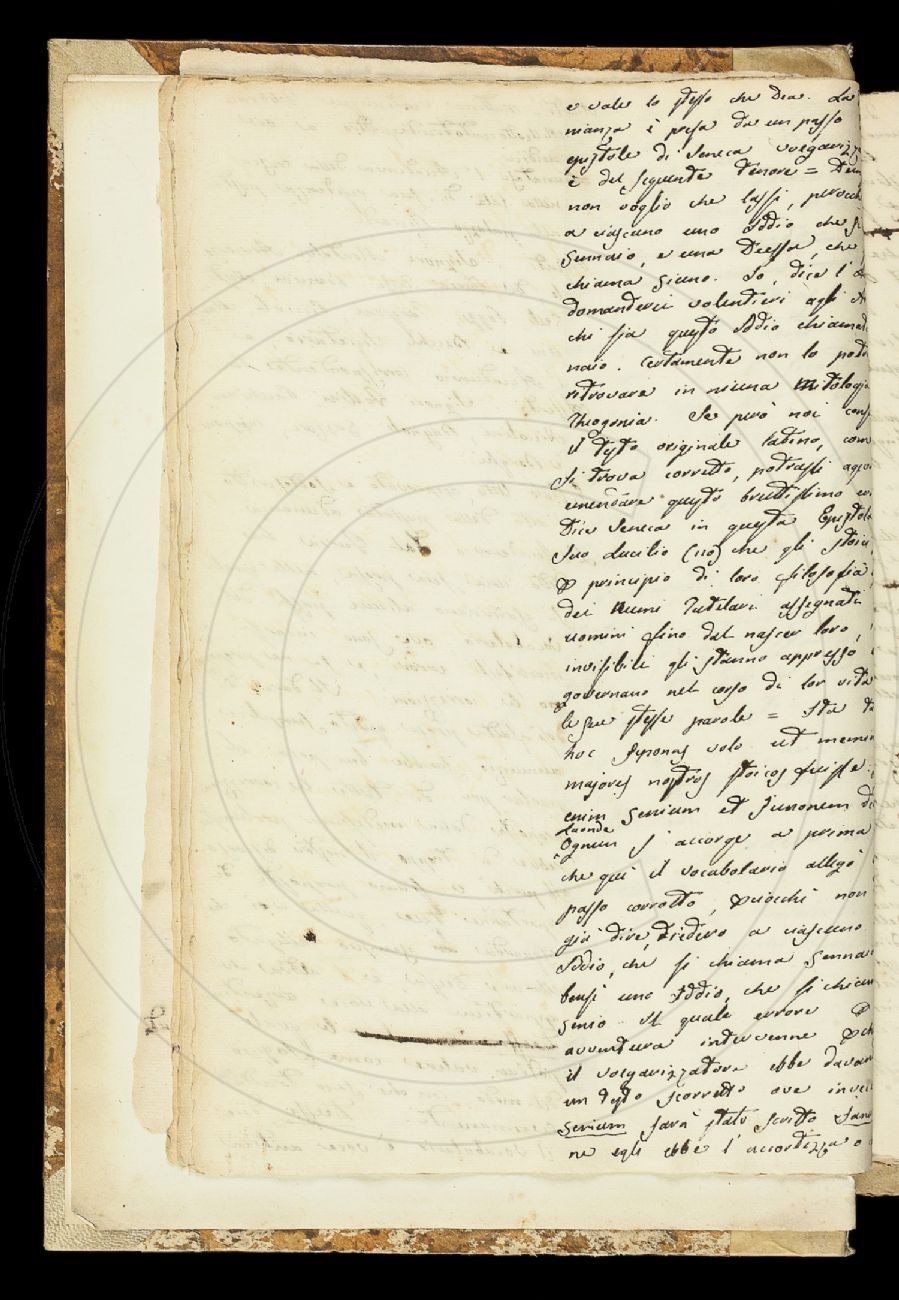 e vale lo stesso che Dea. La
nianza è presa da un passo
epistole di Seneca volgarizz
è del seguente tenore =
non voglio che lassi, perocch
a ciascuno uno Iddio che
Gennaio, e una Deessa, che
chiama Giuno. Io, dice l'
domanderei volentieri agli
chi sia questo Iddio chiamat
naio. Certamente non lo pot
ritrovare in niuna Mitologia
Theogonia. Se però noi cons
il testo originale latino, com
si trova corretto, potrassi agev
emendare questo bruttissimo
Dice Seneca in questa Epistola
suo Lucilio (110) che gli stoici
principio di loro filosofia
dei Numi Tutelari assegnati
uomini fino dal nascer loro,
invisibili gli stanno appresso
governano nel corso di lor vita
le sue stesse parole = Ita
hoc seponas volo ut memin
majores nostros stoicos fuisse
enim Genium et Junonem
Laonde
Ognun s'accorge a prima
che qui il vocabolario allegò
passo corrotto, perciocchè non
già dire, diedero a ciascuno
Iddio, che si chiama Genna
bensì uno Iddio, che si chiam
Genio. Il quale errore
avventura intervenne
il volgarizzatore ebbe davan
un testo scorretto ove invece
Genium sarà stato scritto Jan
ne egli ebbe l'accortezza o